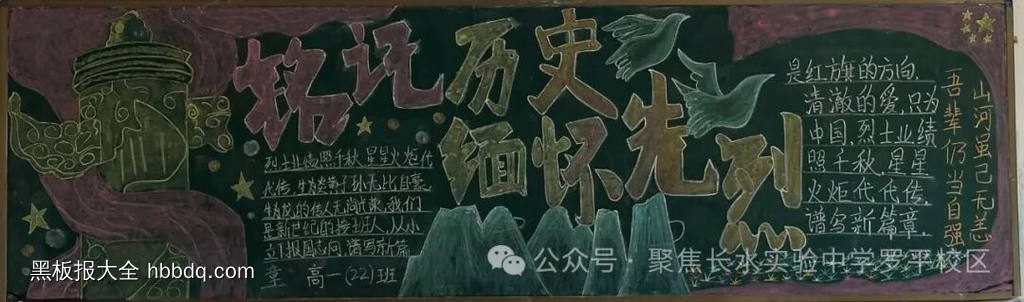 铭记历史
缅怀先烈
烈士业绩照千秋,星星火炬代
代传,
是新世纪的接班人,从小
立报国志向 谱写新篇
章 高一(22)班
是红旗的方向,
清澈的爱,只为
中国,烈士业绩
照千秋,星星
火炬代代传,
谱写新篇章。
山河虽已无恙
吾辈仍当自强
黑板报大全 hbbdq.com
公众号·聚焦长水实验中学罗平校区